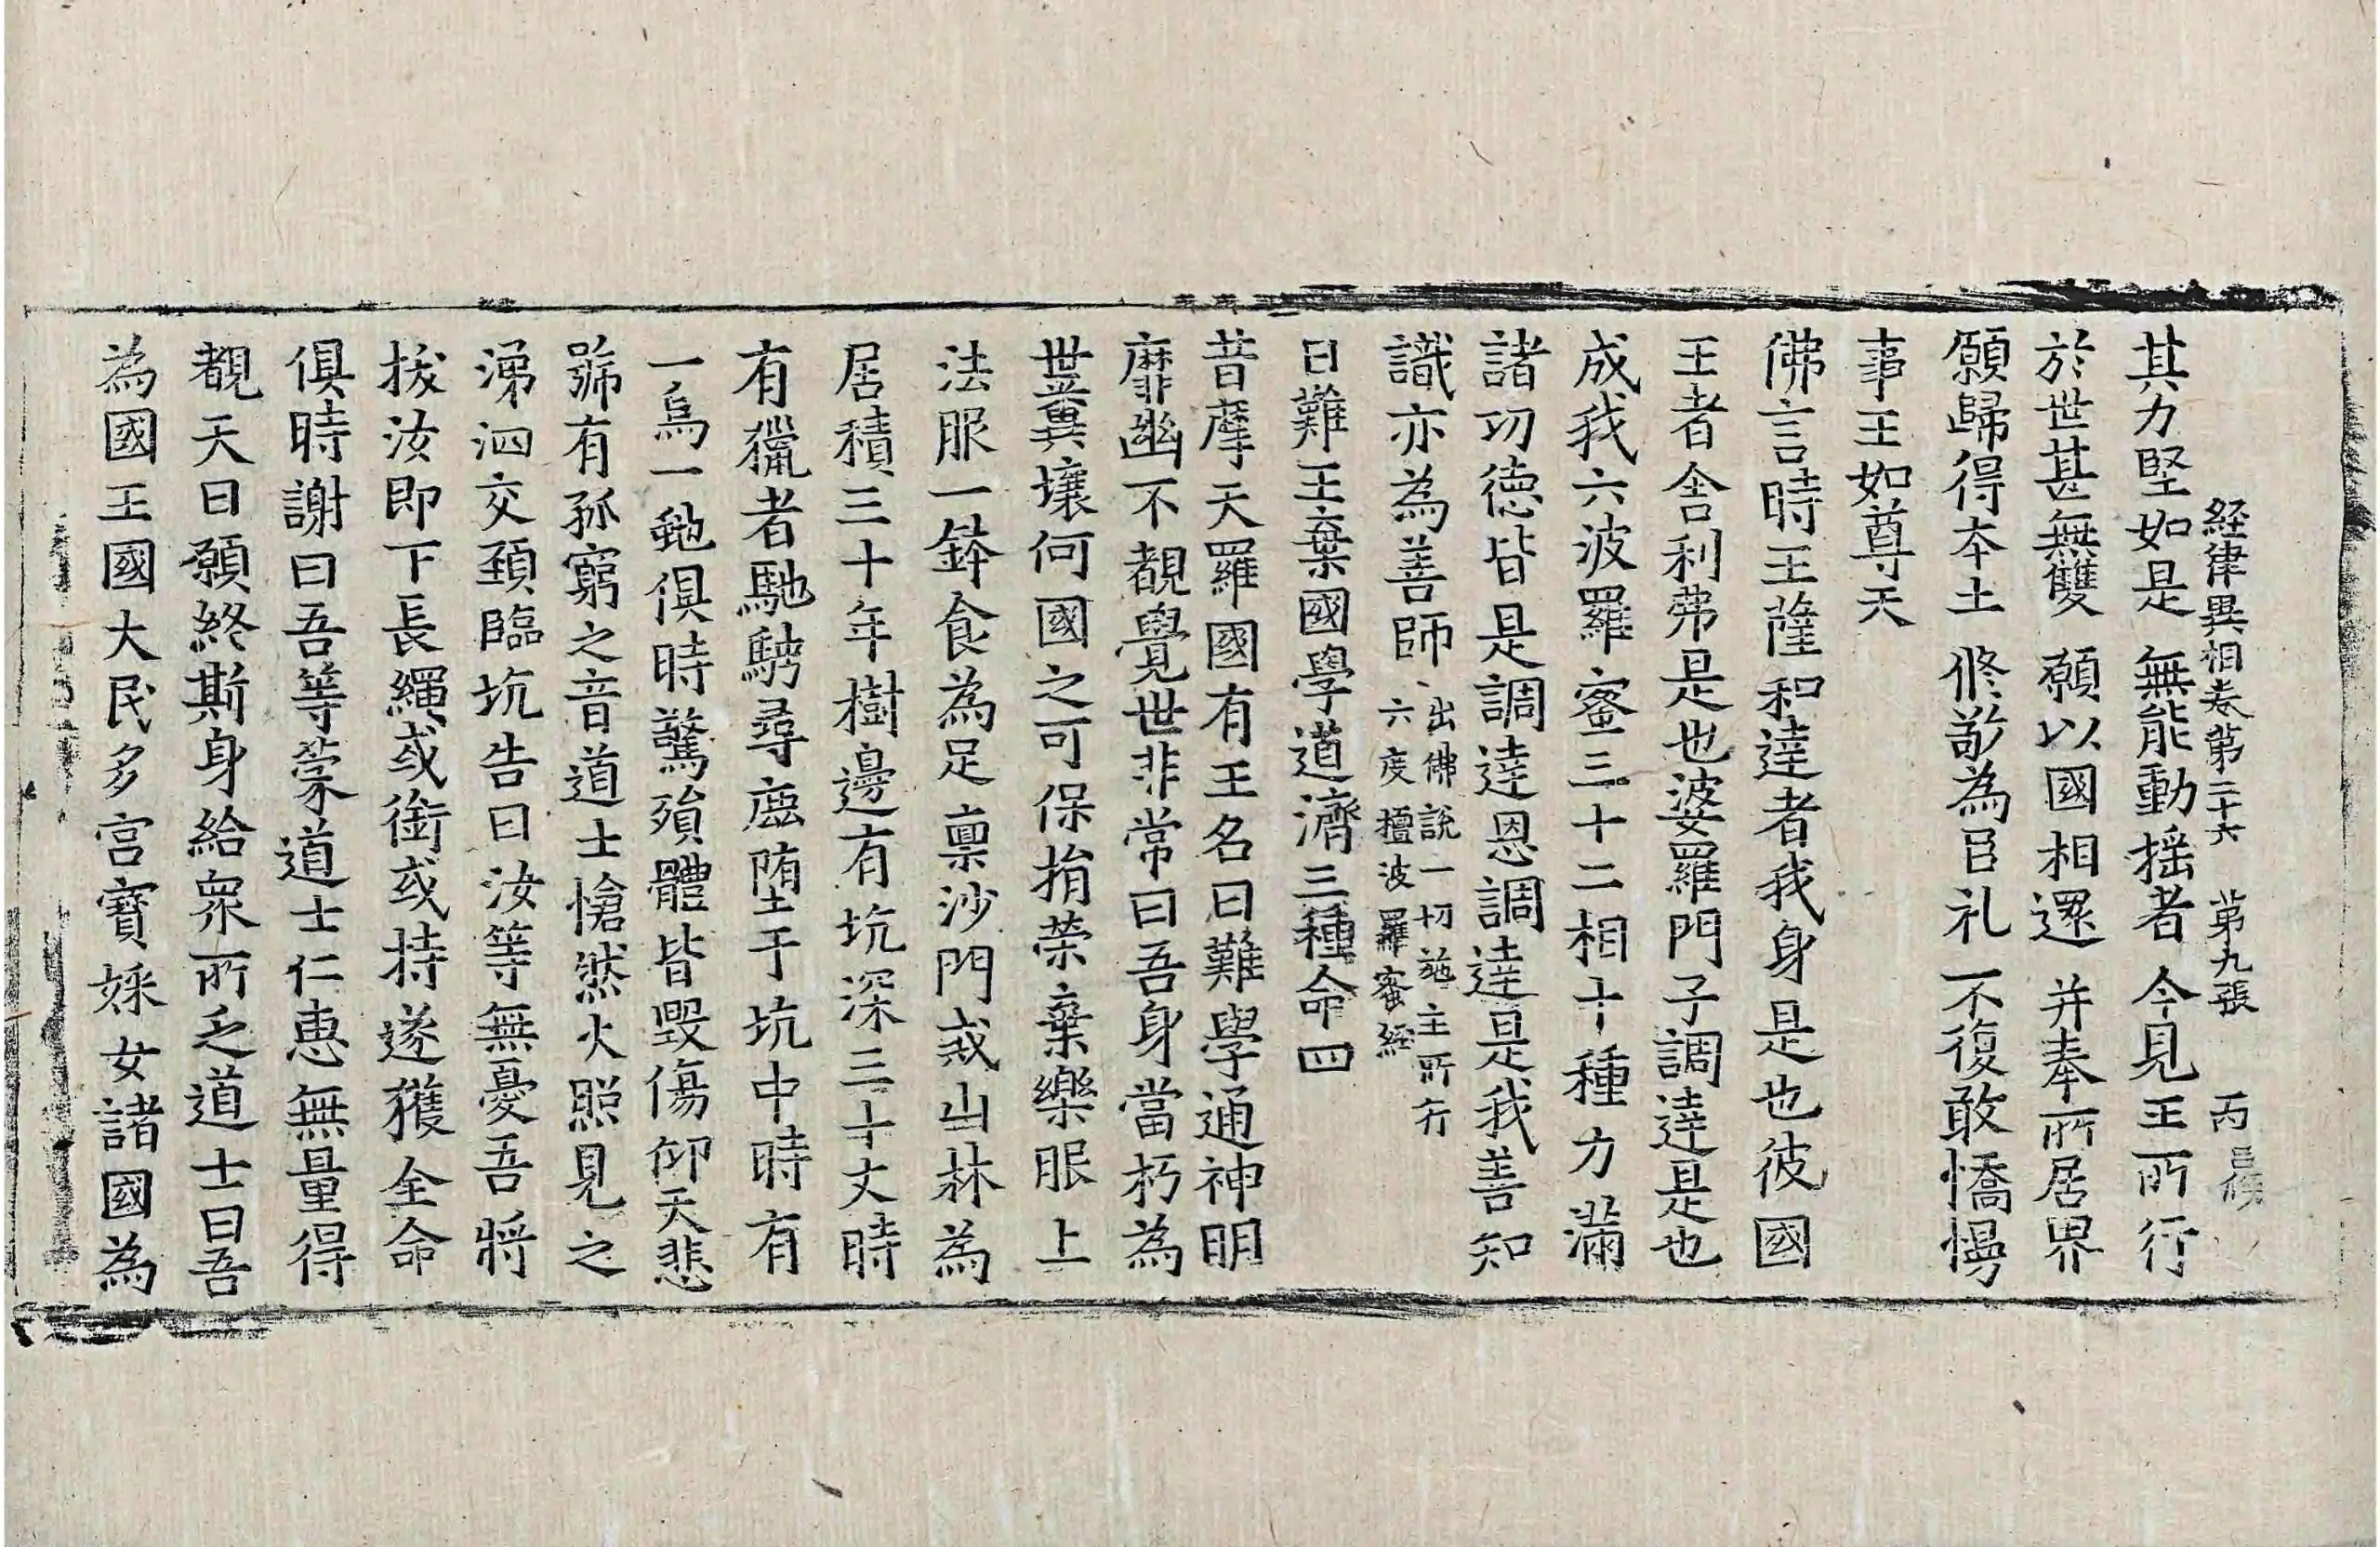 経律異相卷第二十六 第九張 丙
其力堅如是 無能動揺者 今見王所行
於世甚無雙 願以國相還 并奉所居界
願歸得本土 修敬為臣礼 不復敢憍慢
事王如尊天
佛言時王薩和達者我身是也彼國
王者舍利弗是也婆羅門子調達是也
成我六波羅蜜三十二相十種力滿
諸功德皆是調達恩調達是我善知
識亦為善師 出佛說一切施主所行
六度檀波羅蜜經
曰難王棄國學道濟三種命四
昔摩天羅國有王名曰難學通神明
靡幽不覩覺世非常曰吾身當朽為
世糞壤何國之可保捐榮棄樂眼上
法服一鉢食為足稟沙門戒山林為
居積三十年樹邊有坑深三十丈時
有獵者馳騁尋鹿堕于坑中時有
一烏一虵俱時驚殞體皆毀傷仰天悲
號有孤窮之音道士愴然火照見之
涕泗交頚臨坑告曰汝等無憂吾將
拔汝即下長繩或銜或持遂獲全命
俱時謝曰吾等蒙道士仁惠無量得
覩天日願終斯身給衆所乏道士曰吾
為國王國大民多宮寶婇女諸國為